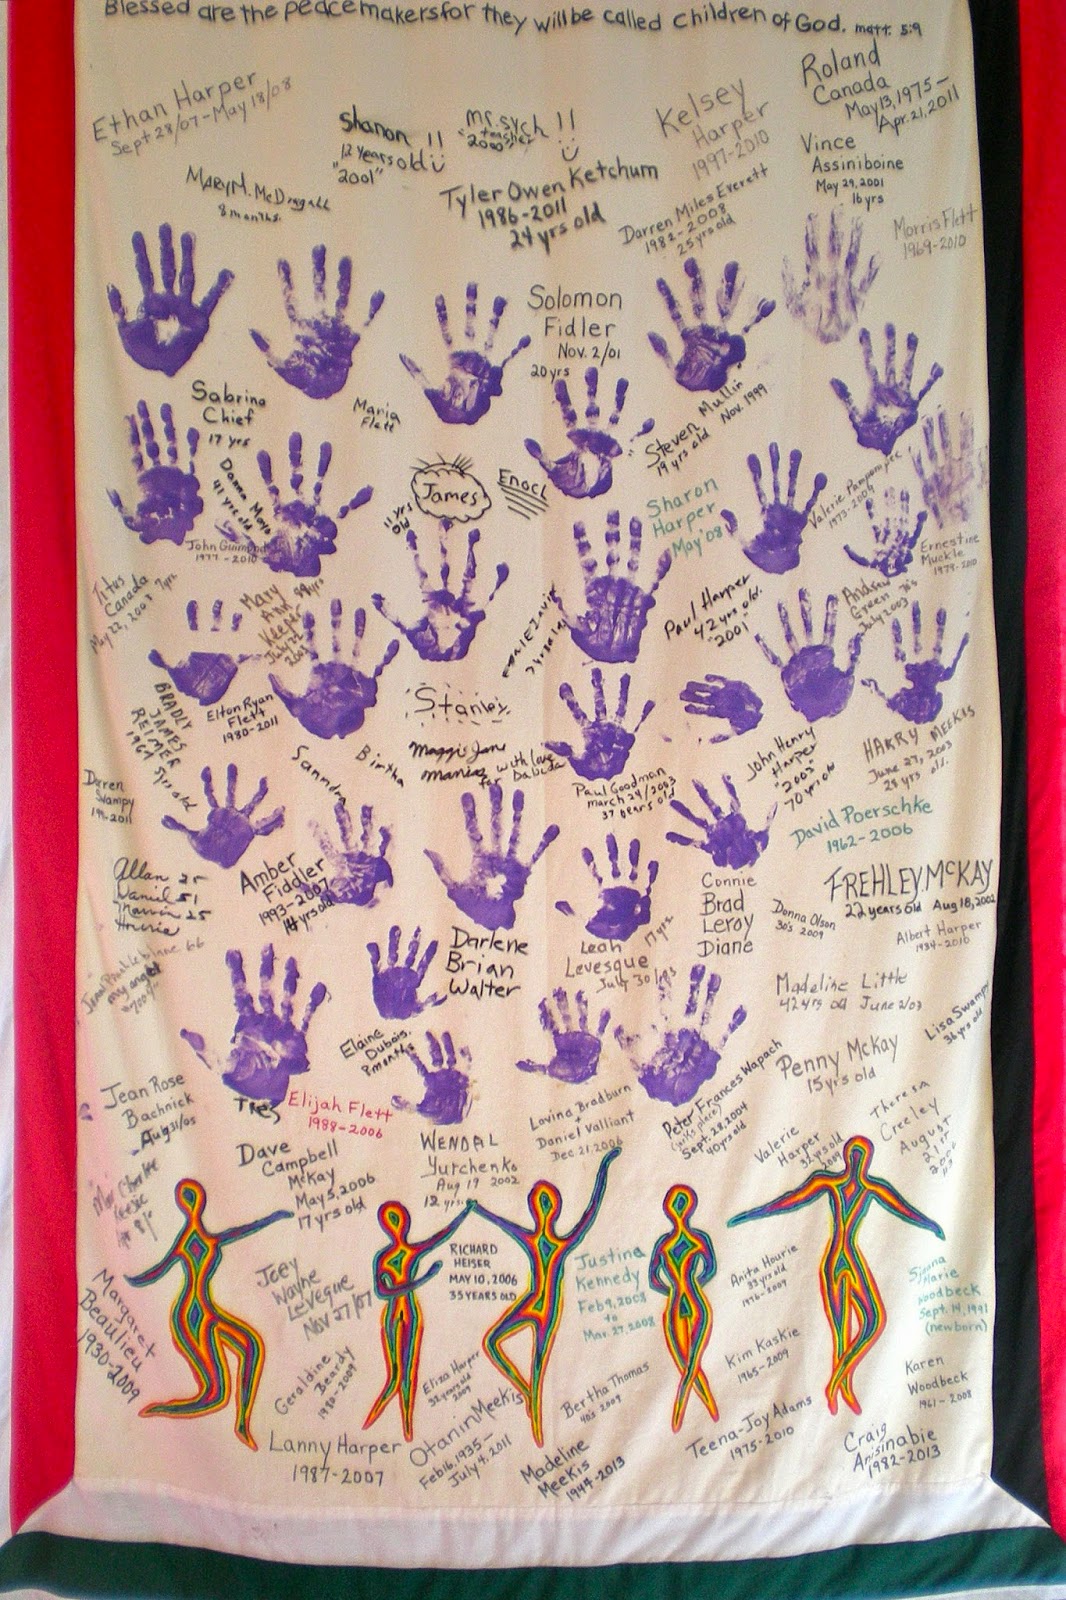 Blessed are the peacemakers for they will be called Children of God. matt. 5:9
Ethan Harper
Sept 28/07 - May 18/08
Shanon !!
12 years old
"2001"
mr. sych !!
"teacher"
"2000"
Kelsey
Harper
1997-2010
Roland
Canada
May 13, 1975 -
Apr. 21, 2011
Vince
Assiniboine
May 29, 2001
16 yrs
Mary M. McDougall
8 months.
Tyler Owen Ketchum
1986-2011
24 yrs old
Darren Miles Everett
1982-2008
25 yrs old
Morris Flett
1969-2010
Solomon
Fidler
Nov. 2/01
20 yrs
Sabrina
Chief
17 yrs
Maria
Flett
Steven Mullin
19 yrs old Nov. 1999
Donna Moyo
41 yrs old
11 yrs
old
James
Enoch
Sharon
Harper
May '08
Valerie Pampompee
1973-2009
John Guimond
1977-2010
Ernestine
Muckle
1979-2010
Titus
Canada
May 22, 2003 7 yrs.
Mary
Ann
Keeper
July 22
2003
Paul Harper
42 yrs old.
"2001"
Andrew
Green
July 2003
Bradly
James
Reimer
1967
5 yrs old
Elton Ryan
Flett
1980-2011
Stanley
Sanndra
Birtha
Maggie Jane
manias
with love
for
Paul Goodman
march 29/2003
37 years old
John Henry
Harper
"2003"
70 yrs old
Harry Meekis
June 27, 2003
Darren
Swampy
David Poerschke
1962-2006
Allan 25
Daniel 51
Marvin 25
Amber
Fiddler
1993-2007
14 yrs old
Connie
Brad
Leroy
Diane
Donna Olson
30's 2009
Frehley. McKay
22 years old Aug 18, 2002
Albert Harper
1934-2010
my angel
Darlene
Brian
Walter
Leah 17 yrs
Levesque
July 30/
Madeline Little
42 yrs old June 2/03
Lisa Swampy
36 yrs old
Elaine
Dubois.
8 months
Penny McKay
15 yrs old
Jean Rose
Bachnick
Aug 31/05
Trez
Elijah Flett
1988-2006
Lovina Bradburn
+
Daniel Valliant
Dec 21, 2006
Peter Frances Wapach
Sept. 28, 2004
40 yrs old
Valerie
Harper
32 yrs old
2009
Theresa
Creeley
August
21st
Dave
Campbell
McKay
May 5, 2006
17 yrs old
Wendal
Yurchenko
Aug 19 2002
12 yrs
Margaret
Beaulieu
1930-2009
Joey
Wayne
LeVegue
Nov 27/07
Richard
Heiser
May 10, 2006
35 years old
Justina
Kennedy
Feb 9, 2008
to
Mar. 27, 2008
Anita Hourie
33 yrs old
1976-2009
Marie
Woodbeck
Sept. 14, 1991
(newborn)
Geraldine
Beardy
Eliza Harper
32 years old
2009
Bertha Thomas
40's 2009
Kim Kaskie
1965-2009
Karen
Woodbeck
1961-2008
Lanny Harper
1987-2007
Otanin Meekis
Feb 16, 1935 -
July 4, 2011
Madeline
Meekis
1944-2013
Teena-Joy Adams
1975-2010
Craig
Anisinabie
1982-2013